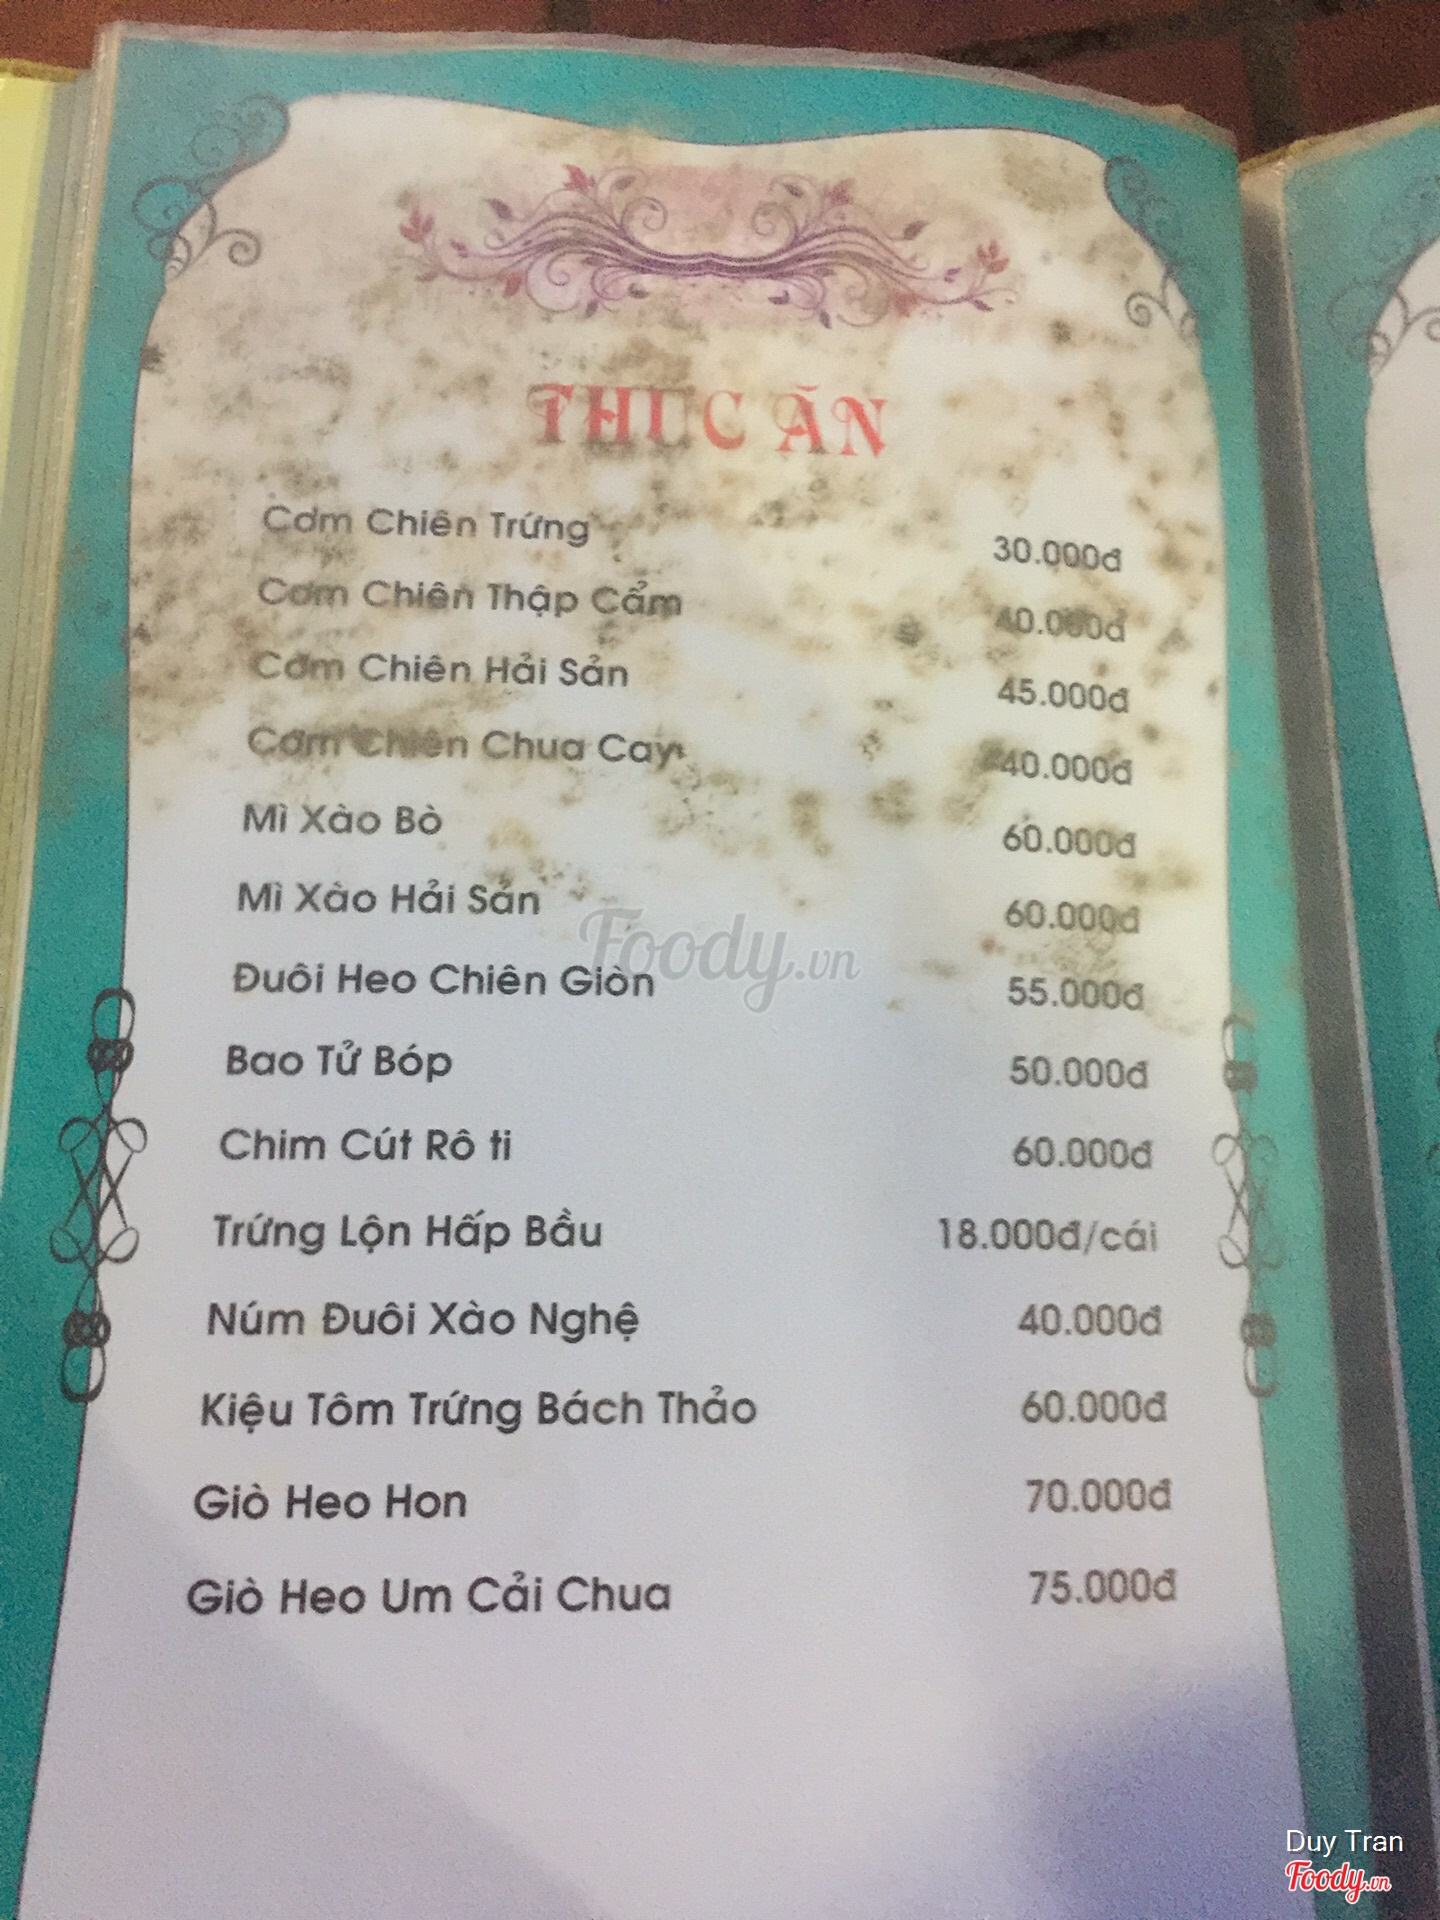 THỨC ĂN
Cơm Chiên Trứng 30.000đ
Cơm Chiên Thập Cẩm 40.000đ
Cơm Chiên Hải Sản 45.000đ
Cơm Chiên Chua Cay 40.000đ
Mì Xào Bò 60.000đ
Mì Xào Hải Sản 60.000đ
Foody.vn
Đuôi Heo Chiên Giòn 55.000đ
Bao Tử Bóp 50.000đ
Chim Cút Rô ti 60.000đ
Trứng Lộn Hấp Bầu 18.000đ/cái
Núm Đuôi Xào Nghệ 40.000đ
Kiệu Tôm Trứng Bách Thảo 60.000đ
Giò Heo Hon 70.000đ
Giò Heo Um Cải Chua 75.000đ
Duy Tran
Foody.vn